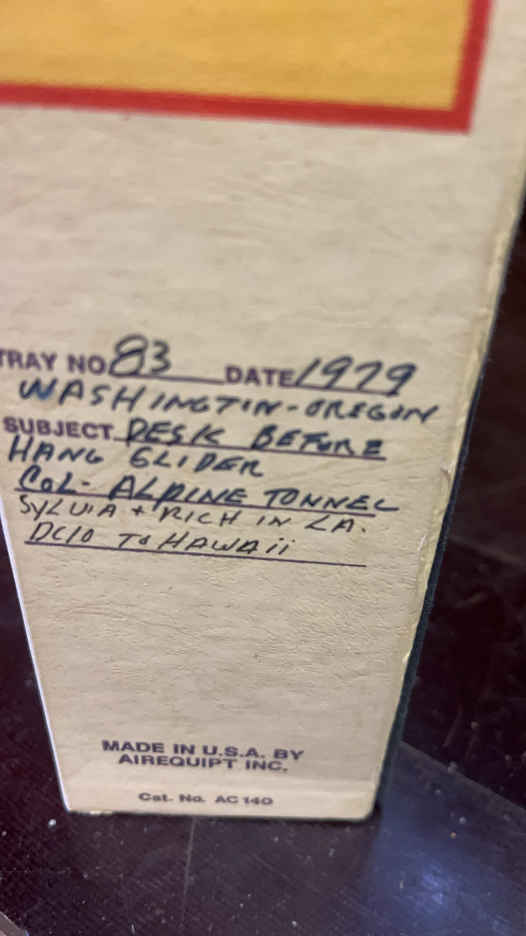 TRAY NO 83 DATE 1979
WASHINGTON-OREGON
SUBJECT DESK BEFORE
HANG GLIDER
COL- ALPINE TONNEL
SYLVIA + RICH IN LA.
DC10 TO HAWAii
MADE IN U.S.A. BY
AIREQUIPT INC.
Cat. No. AC 140